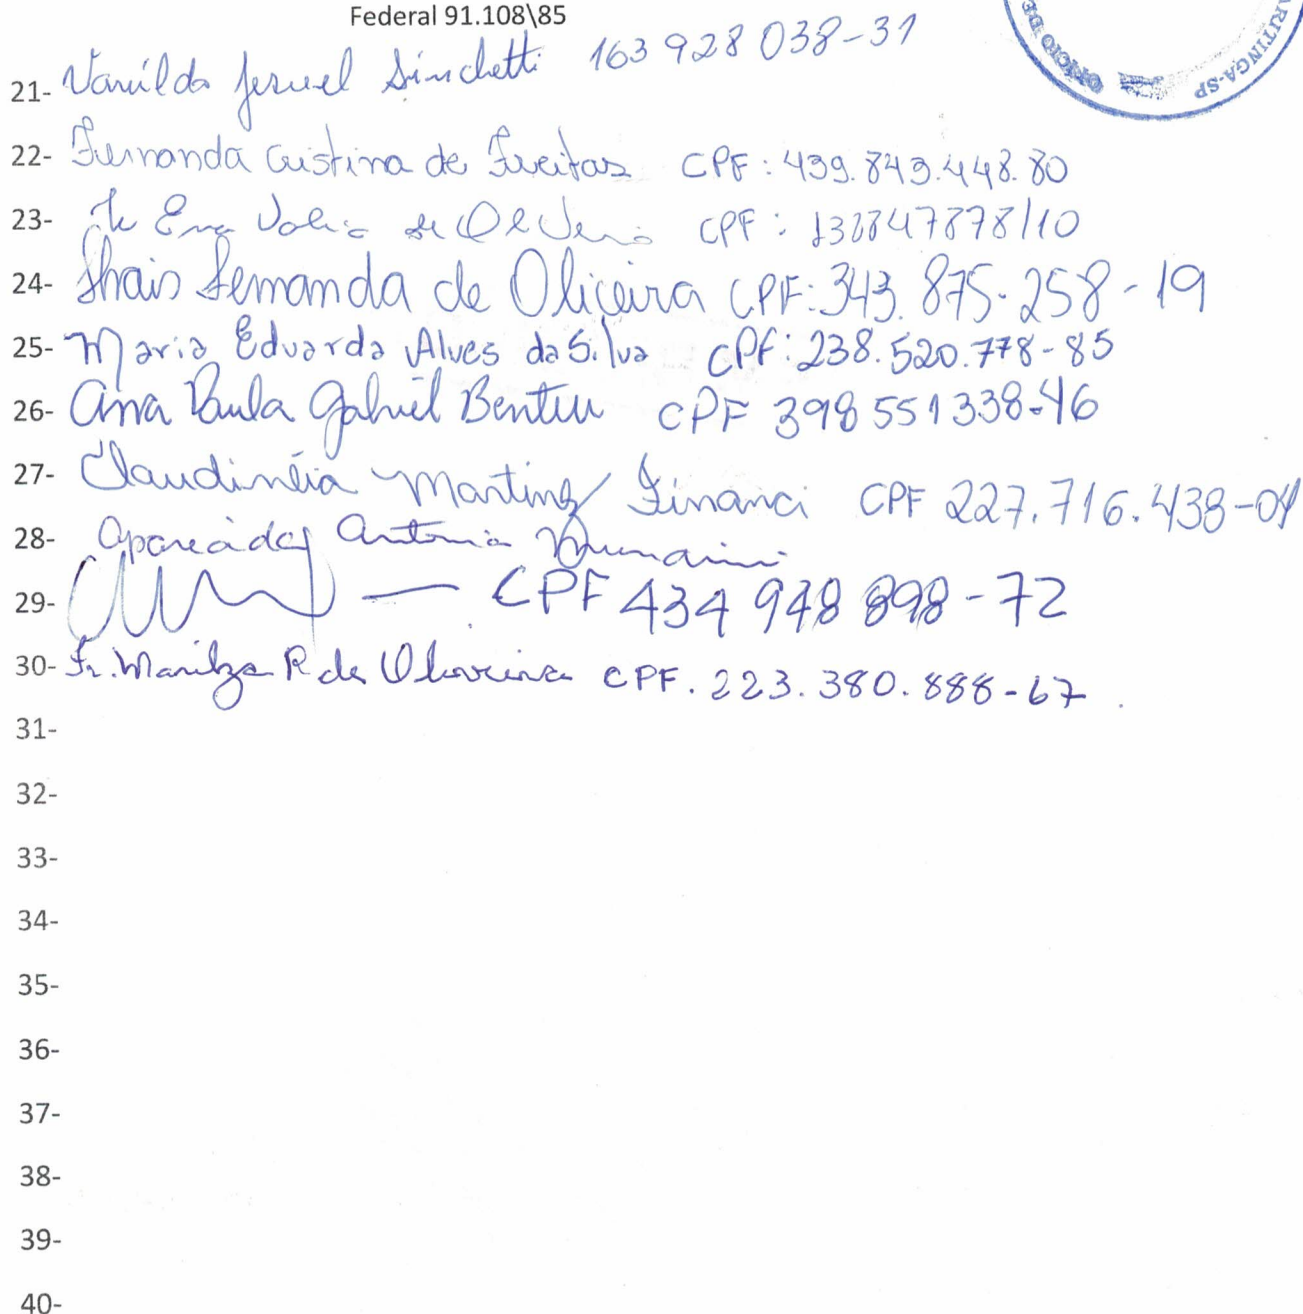 Federal 91.108\85
OFICIO DE
ARITINGA-SP
21- Vanilda Jesuel Sinchetti 163 928 038-31
22- Fernanda Cristina de Freitas CPF: 439.843.448.80
23- de CPF: 132847878/10
24- Thais Fernanda de Oliveira CPF: 343.875.258-19
25- Maria Eduarda Alves da Silva CPF: 238.520.778-85
26- Ana Paula Gabriel CPF 398 551 338-46
27- Claudinéia Martinz Financi CPF 227.716.438-04
28- Aparecida Antonia
29- — CPF 434 948 898-72
30- Ir. Marilza R. de Oliveira CPF. 223.380.888-67
31-
32-
33-
34-
35-
36-
37-
38-
39-
40-